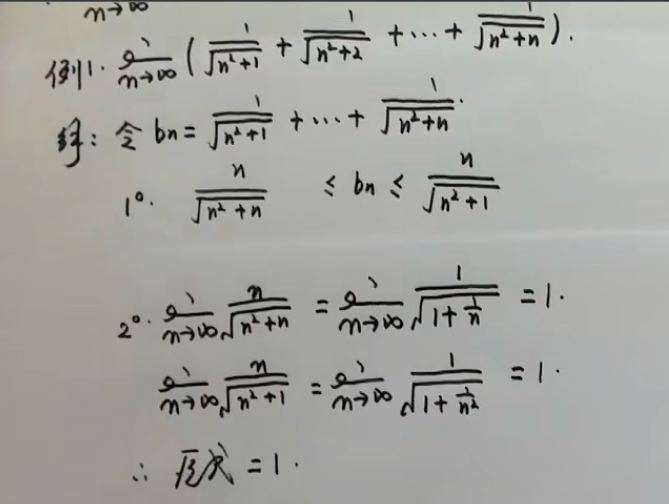 n→∞
例1. lim n→∞ (1/√(n²+1) + 1/√(n²+2) + ⋯ + 1/√(n²+n)).
解: 令 bn = 1/√(n²+1) + ⋯ + 1/√(n²+n).
1°. n/√(n²+n) ≤ bn ≤ n/√(n²+1)
2°. lim n→∞ n/√(n²+n) = lim n→∞ 1/√(1+1/n) = 1.
lim n→∞ n/√(n²+1) = lim n→∞ 1/√(1+1/n²) = 1.
∴ 原式 = 1.